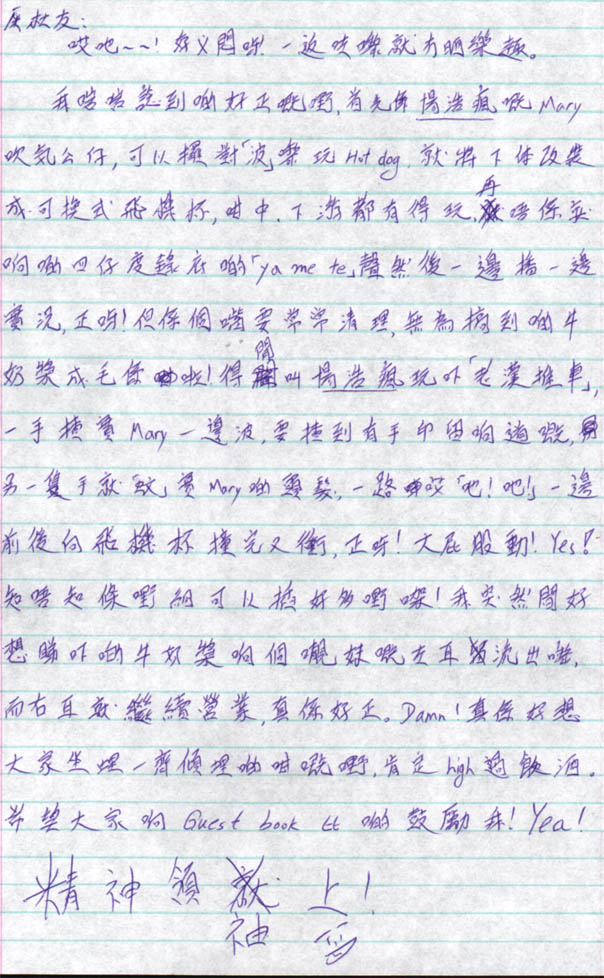 灰校友:
哎吔~~! 好X悶呀! 一返咗嚟就冇晒樂趣。
我啱啱諗到啲好正嘅嘢,首先係楊浩瘋嘅Mary
吹気公仔,可以攞對「波」嚟玩Hot dog,就將下体改裝
成可換式飛機杯,咁中、下游都有得玩,再唔係就
响啲四仔度錄底啲「ya me te」聲然後一邊播一邊
實況,正呀!但係個啫要常常清理,無為搞到啲牛
奶漿成毛病啦!得閒叫楊浩瘋玩吓「老漢推車」,
一手揸實Mary一邊波,要揸到有手印留响道嘅,
另一隻手就「蚊」實Mary啲頭髮,一路哎「吔!吔!」一邊
前後向飛機杯撞完又衝,正呀!大屁股動!Yes!
知唔知條嘢細可以插好多嘢㗎!我突然間好
想睇吓啲牛奶漿响個妹嘅左耳流出嚟,
而右耳就繼續營業,真係好正。Damn!真係好想
大家坐埋一齊傾埋啲咁嘅嘢,肯定high過飲酒。
希望大家响Guest book 比啲鼓勵我!Yea!
精神領袖 上!